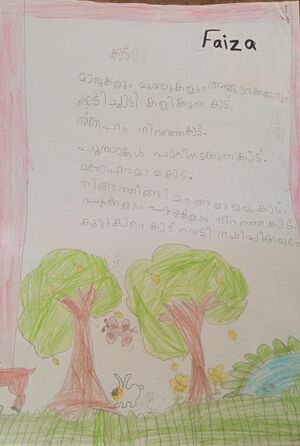 Faiza
കാട്
മാനുകളും മുയലുകളും അണ്ണാറക്കണ്ണനും
ഓടിച്ചാടി കളിക്കുന്ന കാട്.
സ്നേഹം നിറഞ്ഞകാട്.
പൂമ്പാറ്റകൾ പാറിനടക്കുന്ന കാട്.
മനോഹരമായകാട്.
തിങ്ങിത്തിങ്ങി മരങ്ങളുള്ള കാട്.
പൂക്കളും പുഴകളും നിറഞ്ഞ കാട്.
കൂട്ടുകാരെ കാട് വെട്ടി നശിപ്പിക്കരുതേ